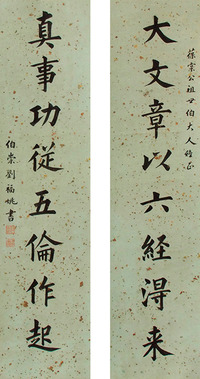 葆棠公祖世伯大人雅正
大文章以六經淂来
真事功從五倫作起
伯崇劉福姚書